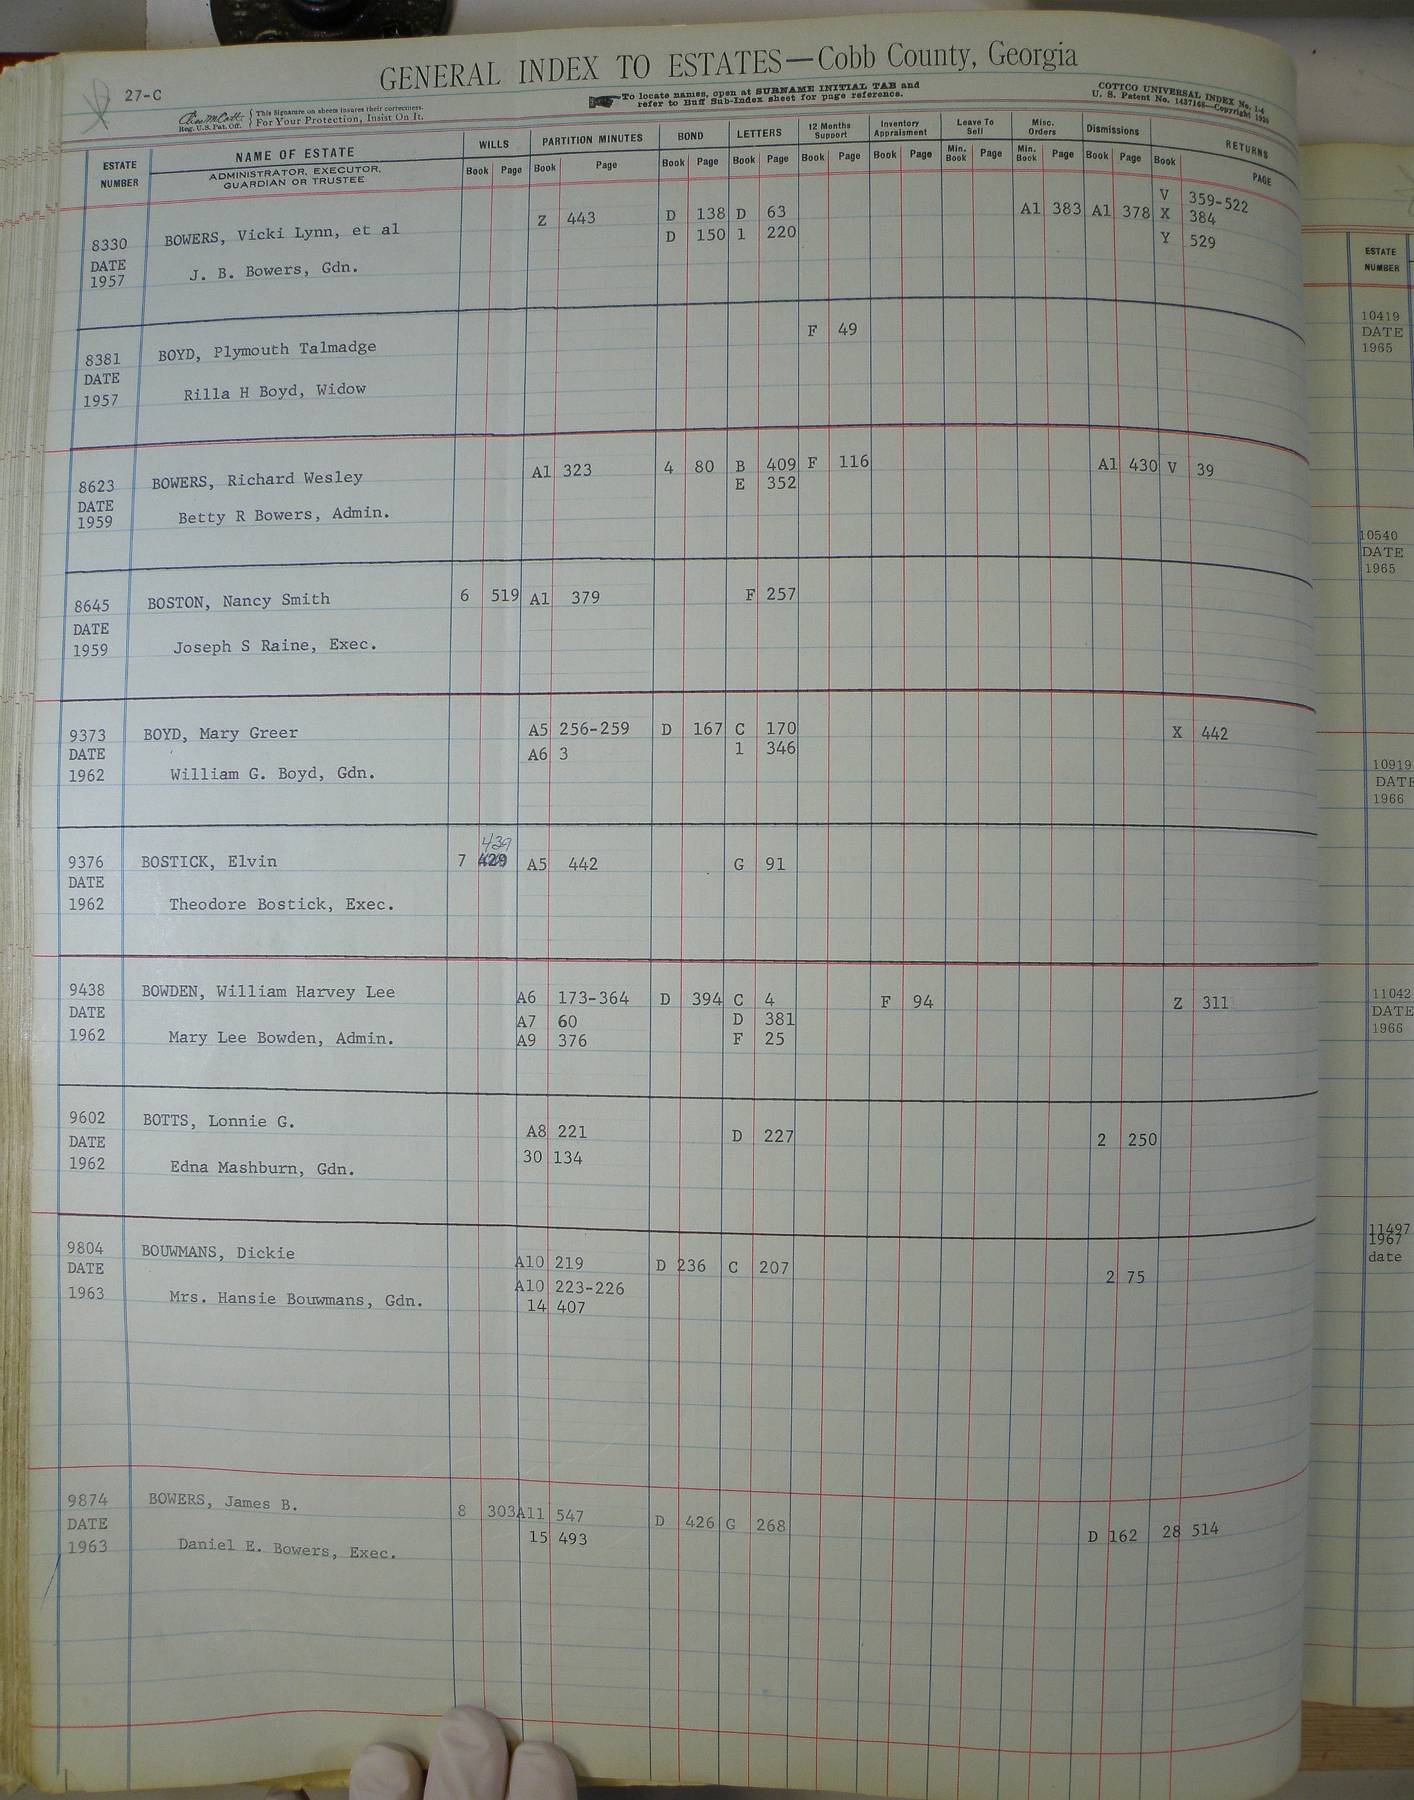 GENERAL INDEX TO ESTATES—Cobb County, Georgia
27-C
Reg. U.S. Pat. Off. This Signature on sheets insures their correctness.
For Your Protection, Insist On It.
To locate names, open at SURNAME INITIAL TAB and
refer to Buff Sub-Index sheet for page reference.
COTTCO UNIVERSAL INDEX No. 1-4
U. S. Patent No. 1437168—Copyright 1936
ESTATE NUMBER
NAME OF ESTATE
ADMINISTRATOR, EXECUTOR,
GUARDIAN OR TRUSTEE
WILLS PARTITION MINUTES BOND LETTERS 12 Months Support Inventory Appraisment Leave To Sell Misc. Orders Dismissions RETURNS
Book Page Book Page Book Page Book Page Book Page Book Page Min. Book Page Min. Book Page Book Page Book PAGE
V 359-522
Z 443 D 138 D 63 A1 383 A1 378 X 384
8330 BOWERS, Vicki Lynn, et al D 150 1 220 Y 529
DATE
1957 J. B. Bowers, Gdn.
F 49
8381 BOYD, Plymouth Talmadge
DATE
1957 Rilla H Boyd, Widow
A1 323 4 80 B 409 F 116 A1 430 V 39
8623 BOWERS, Richard Wesley E 352
DATE
1959 Betty R Bowers, Admin.
8645 BOSTON, Nancy Smith 6 519 A1 379 F 257
DATE
1959 Joseph S Raine, Exec.
9373 BOYD, Mary Greer A5 256-259 D 167 C 170 X 442
DATE A6 3 1 346
1962 William G. Boyd, Gdn.
439
9376 BOSTICK, Elvin 7 429 A5 442 G 91
DATE
1962 Theodore Bostick, Exec.
9438 BOWDEN, William Harvey Lee A6 173-364 D 394 C 4 F 94 Z 311
DATE A7 60 D 381
1962 Mary Lee Bowden, Admin. A9 376 F 25
9602 BOTTS, Lonnie G. A8 221 D 227 2 250
DATE 30 134
1962 Edna Mashburn, Gdn.
9804 BOUWMANS, Dickie A10 219 D 236 C 207 2 75
DATE A10 223-226
1963 Mrs. Hansie Bouwmans, Gdn. 14 407
9874 BOWERS, James B. 8 303 A11 547 D 426 G 268
DATE 15 493 D 162 28 514
1963 Daniel E. Bowers, Exec.
ESTATE
NUMBER
10419
DATE
1965
10540
DATE
1965
10919
DATE
1966
11042
DATE
1966
11497
1967
date